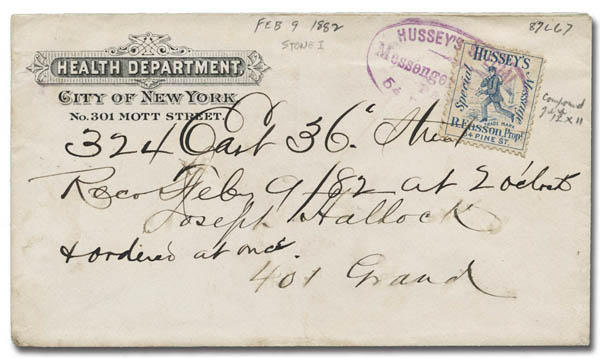 FEB 9 1882
STONE I
87LG7
HEALTH DEPARTMENT,
CITY OF NEW YORK
No. 301 MOTT STREET.
HUSSEY'S
Messenge
54
HUSSEY'S
Special Message
TRADE MARK
R. Easson, Prop!
54 PINE ST.
Compound
12 x 11
324 East 36 Street
Recd Feby 9/82 at 2 o'clock
Joseph Hallock
& ordered at once
401 Grand